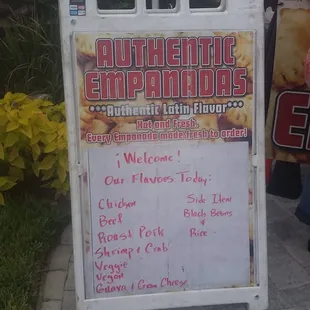 AUTHENTIC
EMPANADAS
***Authentic Latin Flavor***
Hot and Fresh
Every Empanada made fresh to order!
¡Welcome!
Our Flavors Today:
Chicken
Beef
Roast Pork
Shrimp & Crab
Veggie
Vegan
Guava & Cream Cheese
Side Item
Black Beans
&
Rice